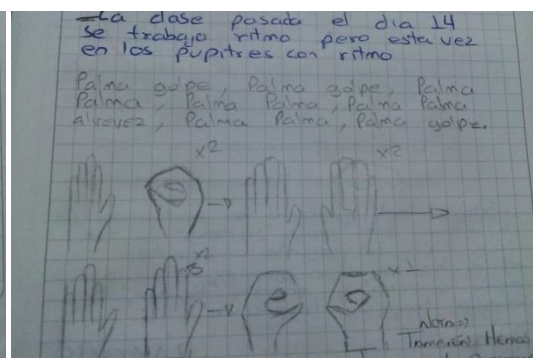 La clase pasada el dia 14
se trabajo ritmo pero esta vez
en los pupitres con ritmo
Palma golpe, Palma golpe, Palma
Palma, Palma Palma, Palma Palma
alrevez, Palma Palma, Palma golpe.
x2 x2
x2 x1
Nota=>
Tambien Hemos